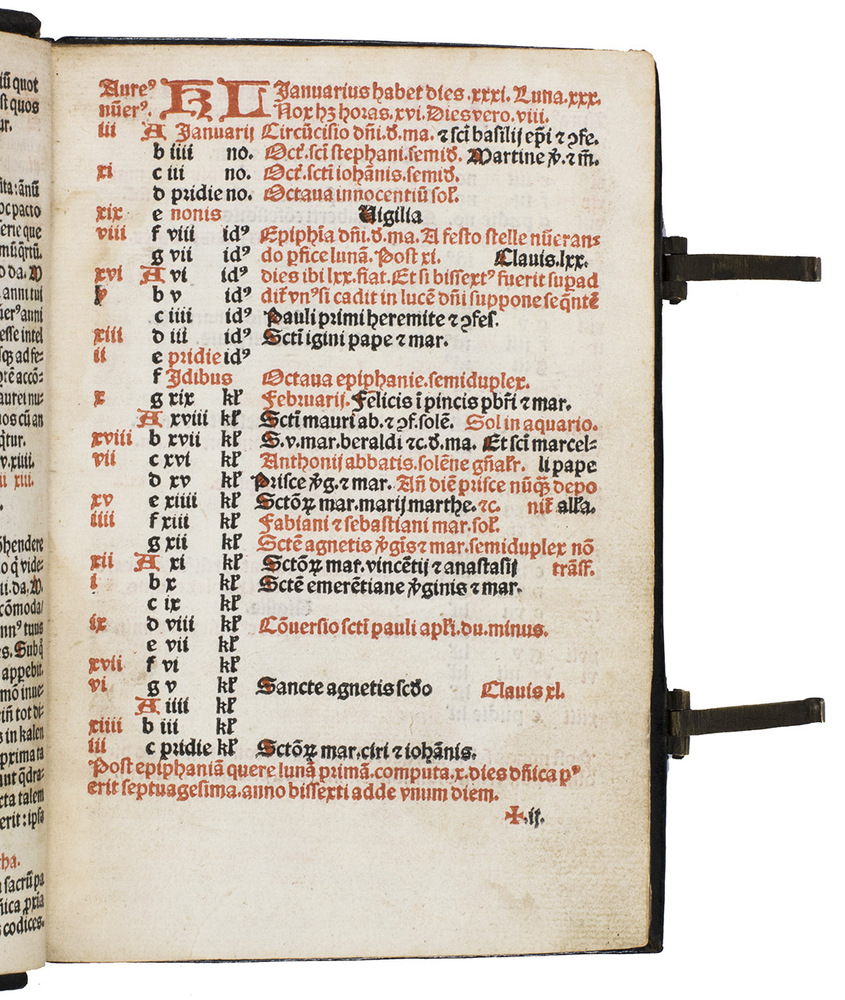 iũ quot
st quos
ur.
ita: ãnũ
oc pacto
ferie que
mũ q̃rtũ.
o da. D
anni tui
er⁹ anni
esse intel
sq̃ ad fe-
tẽ accõ-
aurei nu-
uos cũ an
q̃tur.
v. xiiii.
ii xiii.
õhendere
o q̃ vide-
ii. da. D.
cõmoda/
nn⁹ tuus
es. Subq̃
appebit.
mõ inue-
eiñ tot di-
s in kalen
prima ta
aut q̃dra-
cta talem
erit: ipsa
cha.
a sacrũ pa
ñica p̃xia
s codices.
Aure⁹ KL Januarius habet dies .xxxi. Luna .xxx.
nũer⁹. Nox hz horas .xvi. Dies vero .viii.
iii A Januarij Circũcisio dñi.d̃.ma. ⁊ sci basilij ep̃i ⁊ ɔfe.
b iiii no. Oct̃. sci stephani. semid̃. Martine v̄. ⁊ m̃.
xi c iii no. Oct̃. scti iohãnis. semid̃.
d pridie no. Octaua innocentiũ sol̃.
xix e nonis Uigilia
viii f viii id⁹ Epiphĩa dñi.d̃.ma. A festo stelle nũeran-
g vii id⁹ do p̃fice lunã. Post xi. Clauis. lxx.
xvi A vi id⁹ dies ibi lxx. fiat. Et si bissext⁹ fuerit sup̃ad
v b v id⁹ dit̃ vn⁹ si cadit in lucẽ dñi suppone seq̃ntẽ
c iiii id⁹ Pauli primi heremite ⁊ ɔfes.
xiii d iii id⁹ Scti igini pape ⁊ mar.
ii e pridie id⁹
f Idibus Octaua epiphanie. semiduplex.
x g xix kl̃ Februarij. Felicis ĩ pincis pbr̃i ⁊ mar.
A xviii kl̃ Scti mauri ab. ⁊ ɔf. solẽ. Sol in aquario.
xviii b xvii kl̃ S. v. mar. beraldi ⁊c. d̃. ma. Et sci marcel-
vii c xvi kl̃ Anthonij abbatis. solẽne gñalr̃. li pape
d xv kl̃ Prisce v̄g. ⁊ mar. Añ diẽ prisce nũq̃ depo
xv e xiiii kl̃ Sctõꝝ mar. marij marthe. ⁊c. nit̃ alla.
iiii f xiii kl̃ Fabiani ⁊ sebastiani mar. sol.
g xii kl̃ Sctẽ agnetis v̄gĩs ⁊ mar. semiduplex nõ
xii A xi kl̃ Sctõꝝ mar. vincẽtij ⁊ anastasij trãsf.
i b x kl̃ Sctẽ emerẽtiane v̄ginis ⁊ mar.
c ix kl̃
ix d viii kl̃ Cõuersio scti pauli apl̃i. du. minus.
e vii kl̃
xvii f vi kl̃
vi g v kl̃ Sancte agnetis scdo Clauis xl.
A iiii kl̃
xiiii b iii kl̃
iii c pridie kl̃ Sctõꝝ mar. ciri ⁊ iohãnis.
Post epiphaniã quere lunã primã. computa .x. dies dñica p⁹
erit septuagesima. anno bissexti adde vnum diem.
✠. ij.